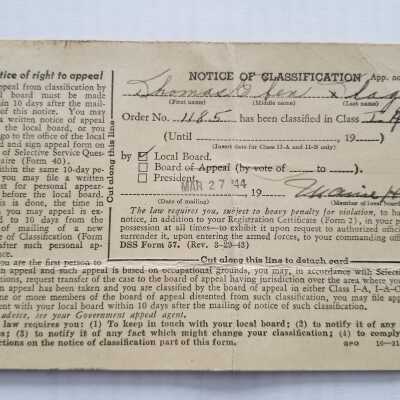 otice of right to appeal
appeal from classification by
al board must be made
within 10 days after the mail-
of this notice. You may
a written notice of appeal
the local board, or you
go to the office of the local
and sign appeal form on
of Selective Service Ques-
aire (Form 40).
within the same 10-day pe-
you may file a written
st for personal appear-
efore the local board.
is is done, the time in
you may appeal is ex-
ed to 10 days from the
of mailing of a new
e of Classification (Form
fter such personal ap-
ce.
you are the first person to
Cut along this line
NOTICE OF CLASSIFICATION App. no
Thomas
(First name) (Middle name) (Last name)
Order No. 1185 has been classified in Class I-A
(Until , 19 )
(Insert date for Class II-A and II-B only)
by ☑ Local Board.
☐ Board of Appeal (by vote of to ).
☐ President.
MAR 27 '44 , 19
(Date of mailing) (Member of local board)
The law requires you, subject to heavy penalty for violation, to ha
notice, in addition to your Registration Certificate (Form 2), in your p
possession at all times—to exhibit it upon request to authorized offici
surrender it, upon entering the armed forces, to your commanding offic
DSS Form 57. (Rev. 3-29-43)
Cut along this line to detach card
an appeal and such appeal is based on occupational grounds, you may, in accordance with Selectiv
ions, request transfer of the case to the board of appeal having jurisdiction over the area where you
n appeal has been taken and you are classified by the board of appeal in either Class I-A, I-A-O
ne or more members of the board of appeal dissented from such classification, you may file appe
nt with your local board within 10 days after the mailing of this notice of such classification.
advice, see your Government appeal agent.
law requires you: (1) To keep in touch with your local board; (2) to notify it of any
s; (3) to notify it of any fact which might change your classification; (4) to comply
ctions on the notice of classification part of this form. GPO 16—21